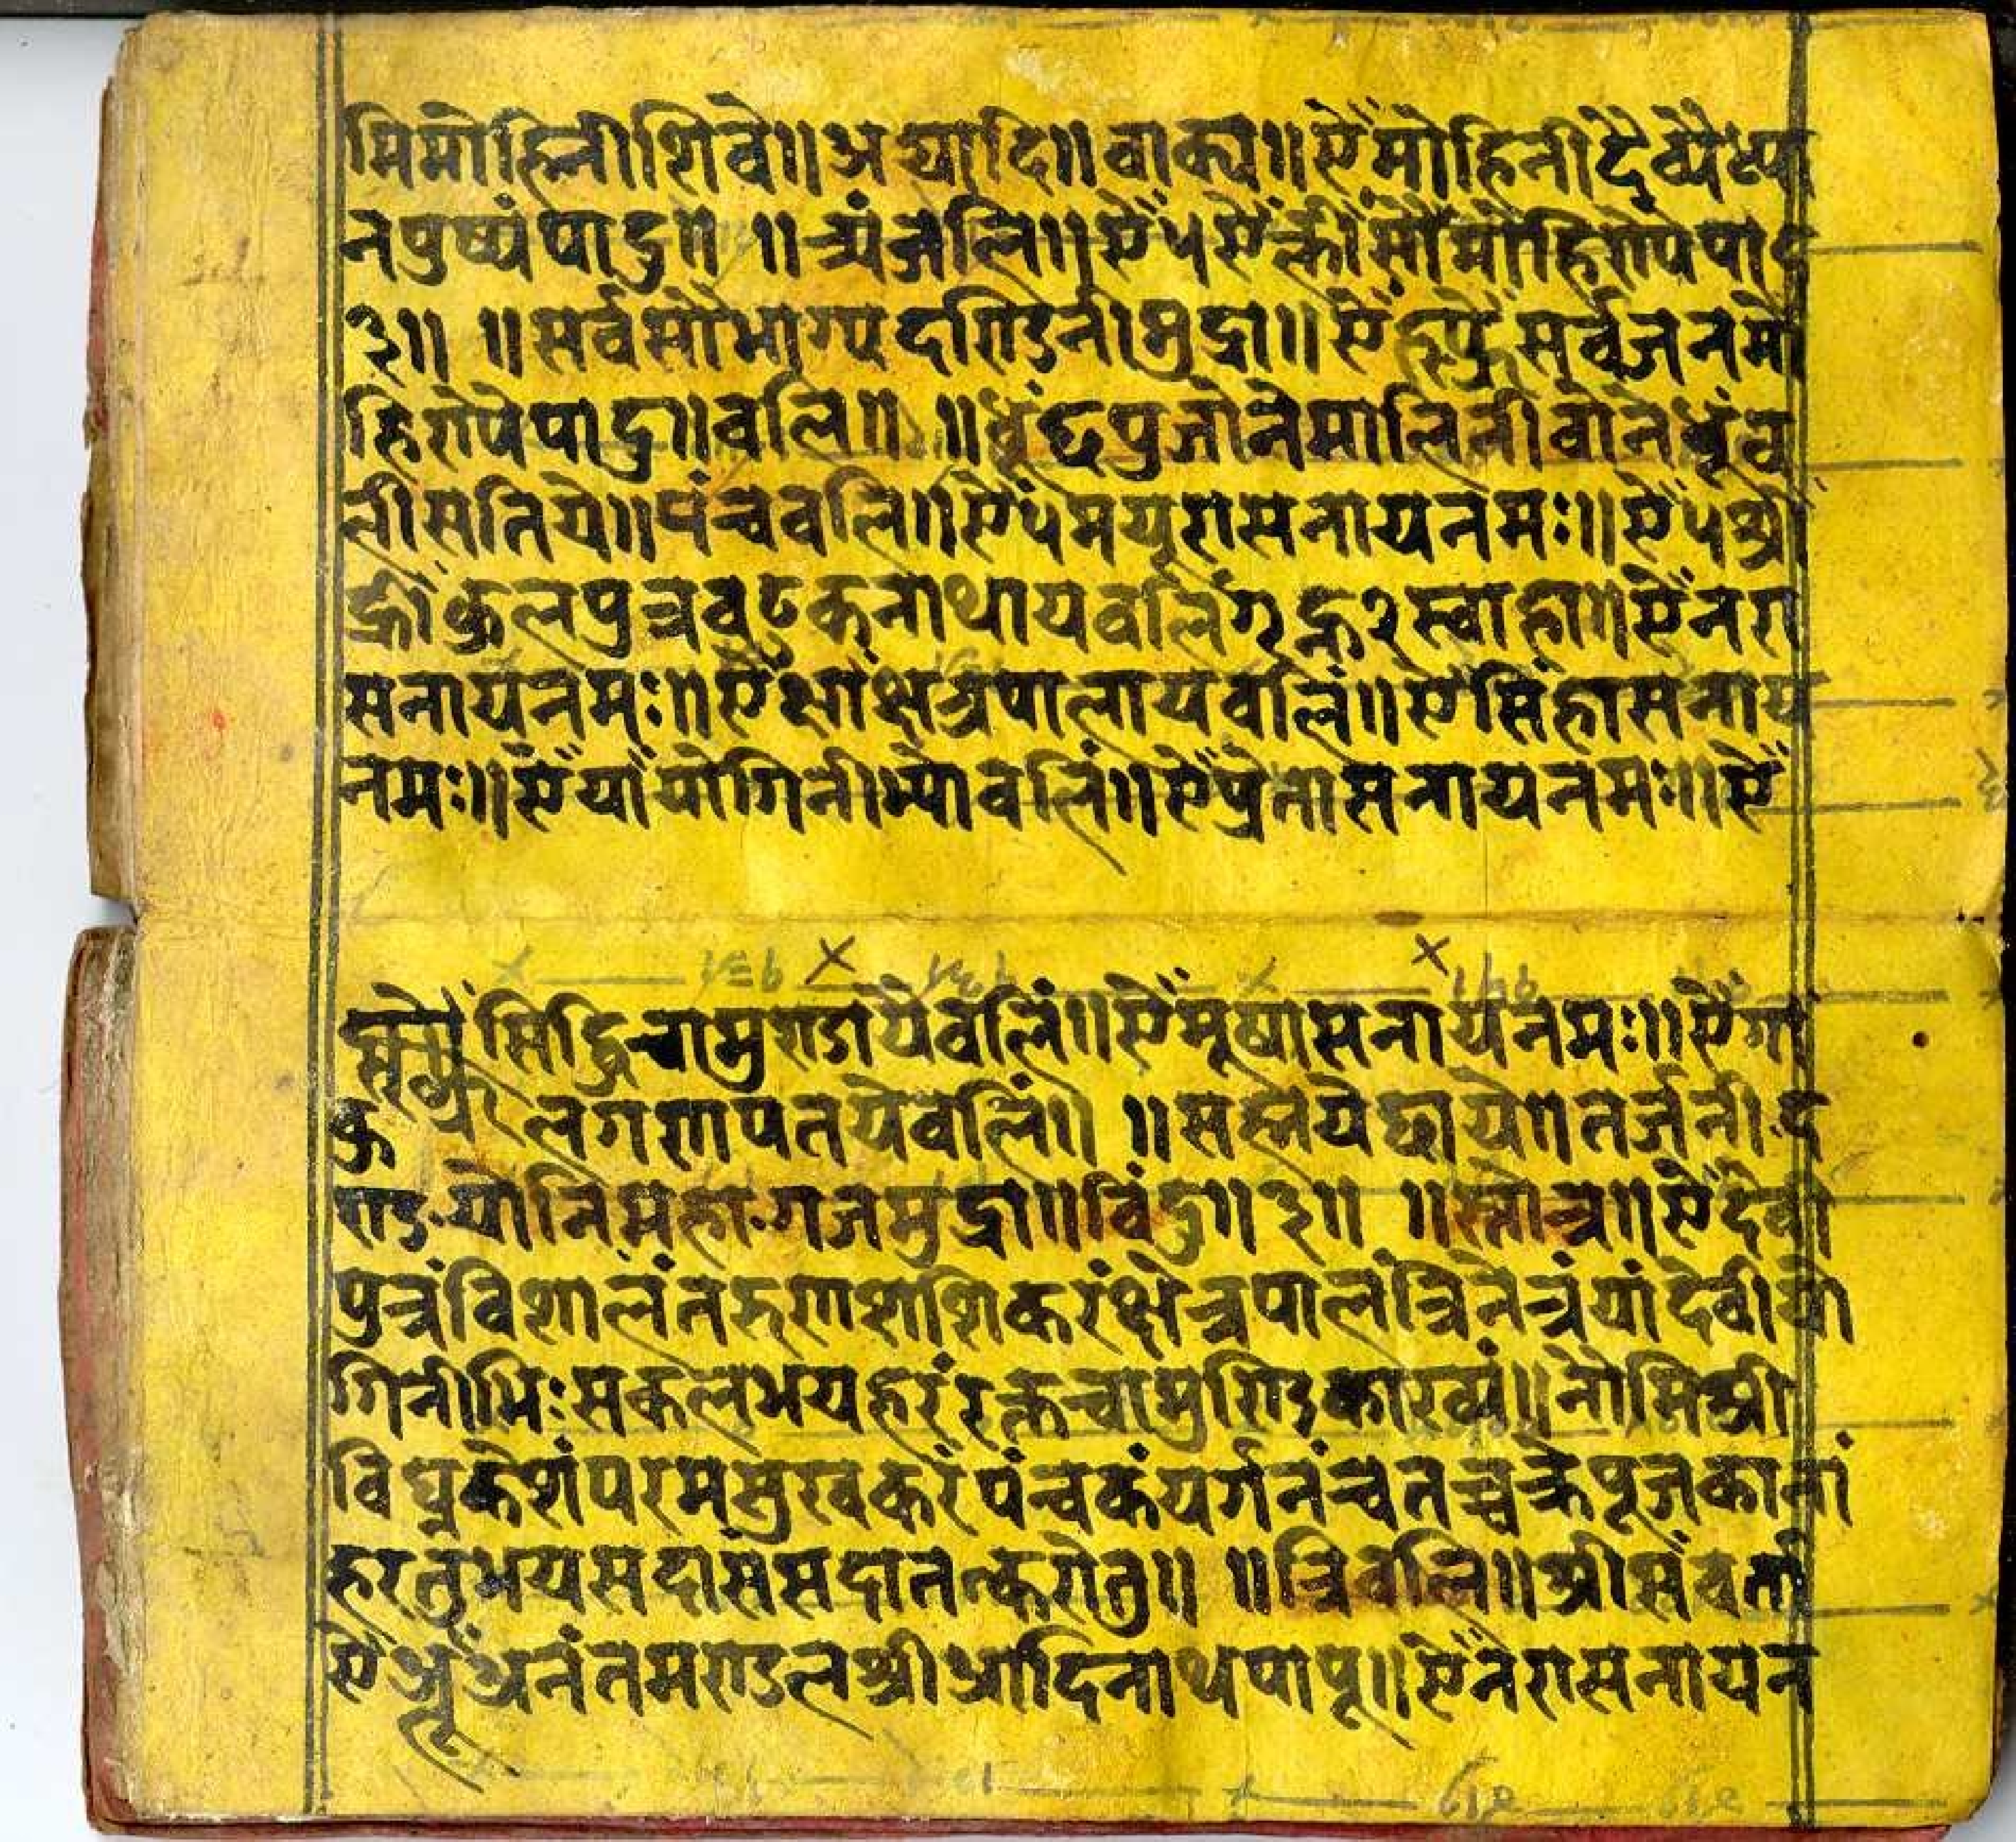 मिमोहिनीशिवे॥अद्यादि॥वाक्य॥ऐँमोहिनीदेव्यैध्या
नपुष्पंपादु॥ ॥त्र्यंजलि॥ऐँ५ऐँक्लीँसौँमोहिण्येपादु
३॥ ॥सर्वसौभाग्यदण्डिनीमुद्रा॥ऐँ सर्वजनमो
हिण्येपादु॥वलि॥ ॥धुंछपुजोनेमालिनीवोनेधुंव
लीसतिये॥पंचवलि॥ऐँ५मयूरासनायनमः॥ऐँ५श्रीँ
ह्रीँकुलपुत्रवटुकनाथायवलिंगृह्न२स्वाहा॥ऐँनरा
सनायनमः॥ऐँक्षांक्षेत्रपालायवलिं॥ऐँसिंहासनाय
नमः॥ऐँयांयोगिनीभ्योवलिं॥ऐँप्रेतासनायनमः॥ऐँ
सिद्धिचामुण्डायैवलिं॥ऐँमूषासनायनमः॥ऐँगां
लगणपतयेवलिं॥ ॥सह्नयेछायो॥तर्जनीद
ण्डयोनिमहागजमुद्रा॥विंदु॥३॥ ॥स्तोत्र॥ऐँदेवी
पुत्रंविशालंतरुणशशिकरंक्षेत्रपालंत्रिनेत्रंयांदेवीयो
गिनीभिःसकलभयहरंरक्तचामुण्डिकाख्यं॥नौमिश्री
विघ्नकेशंपरमसुखकरंपंचकंयर्गनंचतच्चक्रेपूजकानां
हरतुभयसदासंसदातत्करोतु॥ ॥त्रिवलि॥श्रीसंवर्ता
ऐँ अनंतमण्डलश्रीआदिनाथपापू॥ऐँनरासनायन